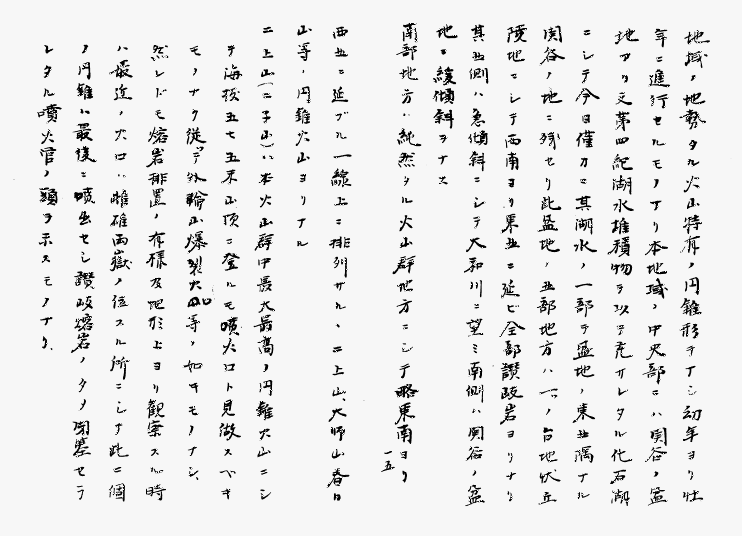 地域ノ地勢タル火山特有ノ円錐形ヲナシ幼年ヨリ壮
年ニ進行セルモノナリ本地域ノ中央部ニハ関谷ノ盆
地アリ又第四紀湖水堆積物ヲ以テ充サレタル化石湖
ニシテ今日僅カニ其湖水ノ一部ヲ盆地ノ東北隅ナル
関谷ノ地ニ残セリ此盆地ノ北部地方ハ一ノ台地状丘
陵地ニシテ西南ヨリ東北ニ延ビ全部讃岐岩ヨリナリ
其北側ハ急傾斜ニシテ大和川ニ望ミ南側ハ関谷ノ盆
地ニ緩傾斜ヲナス
南部地方ハ純然タル火山群地方ニシテ略東南ヨリ
一五
西北ニ延ブル一線上ニ排列サル、二上山、大師山春日
山等ノ円錐火山ヨリナル
二上山(二子山)ハ本火山群中最大最高ノ円錐火山ニシ
テ海抜五七五米山頂ニ登ルモ噴火口ト見做スベキ
モノナク従テ外輪山爆裂火口等ノ如キモノナシ、
然レドモ熔岩排置ノ有様及地形上ヨリ観察スル時
ハ最近ノ火口ハ雌雄両嶽ノ位スル所ニシテ此二個
ノ円錐ハ最後ニ噴出セシ讃岐熔岩ノタメ閉塞セラ
レタル噴火管ノ頭ヲ示スモノナリ、